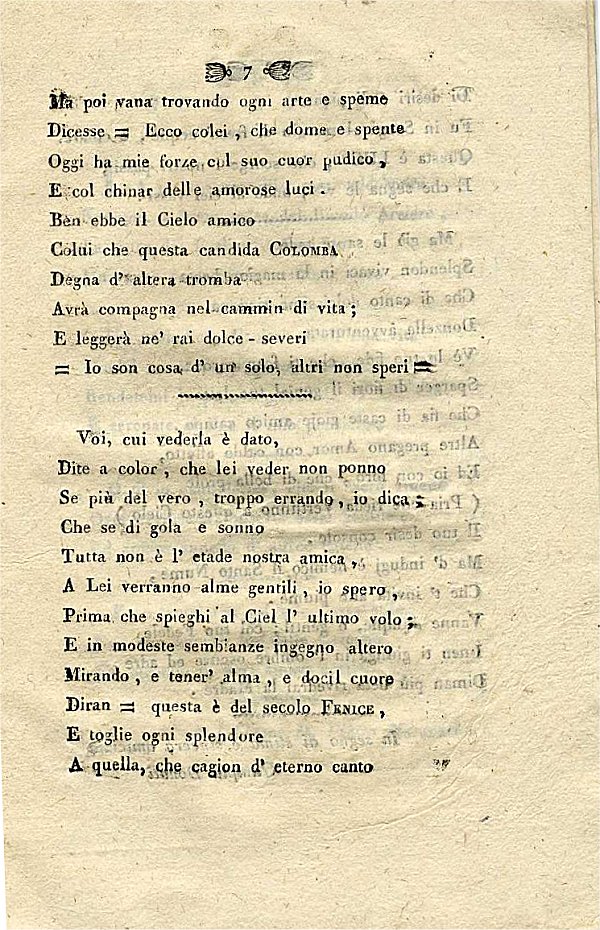 7
Ma poi vana trovando ogni arte e speme
Dicesse = Ecco colei, che dome e spente
Oggi ha mie forze col suo cuor pudico,
E col chinar delle amorose luci.
Ben ebbe il Cielo amico
Colui che questa candida COLOMBA
Degna d' altera tromba
Avrà compagna nel cammin di vita;
E leggerà ne' rai dolce-severi
= Io son cosa d' un solo, altri non speri =
Voi, cui vederla è dato,
Dite a color, che lei veder non ponno
Se più del vero, troppo errando, io dica;
Che se di gola e sonno
Tutta non è l' etade nostra amica,
A Lei verranno alme gentili, io spero,
Prima che spieghi al Ciel l' ultimo volo;
E in modeste sembianze ingegno altero
Mirando, e tener' alma, e docil cuore
Diran = questa è del secolo FENICE,
E toglie ogni splendore
A quella, che cagion d' eterno canto